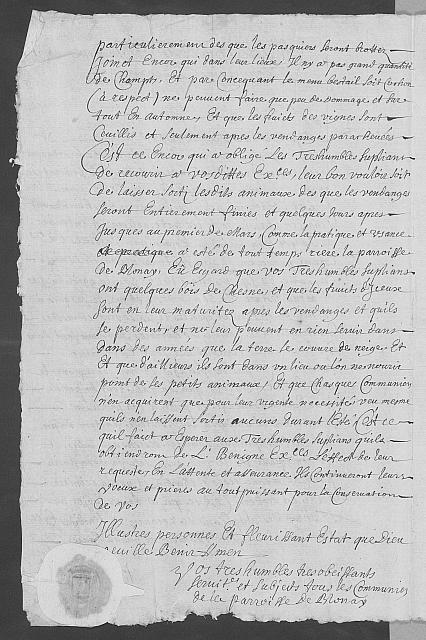 particulierement des que les pasquiers seront
Encor qui dans leur lieux Il ny a pas grand quantité
de Champts, Et par Consequant le menu bestail soit Cochon
(a respect) ne peuvent faire que peu de dommage, et sur
tout en Automne, Et que les fruits des vignes sont
Cueillis et seulement apres les vendanges parachevées
C'est ce Encore qui a oblige Les Treshumbles Suplians
de recourir a vosdittes Ex:ces leur bon vouloir soit
de laisser sortir lesdits animaux des que les vendanges
seront Entierement finies et quelques Jours apres
Jusques au premier de Mars, Comme la pratique, et Usance
a esté de tout temps riere la parroisse
de Blonay, Eu Esgard que vos Treshumbles Suplians
ont quelques bois de Chesne, et que les fruits d'Iceux
sont en leur maturitéz apres les vendanges et quils
se perdent, et ne leur peuvent en rien servir dans
dans des années que la terre se couvre de neige, Et
Et que d'ailleurs ils sont dans un lieu ou lon ne nourir
point de ses petits animaux, Et que Chasque Communier
n'en acquirent que pour leur urgente necessité, veu mesme
quils n'en laissent sortir aucuns durant l'esté, C'est ce
quil faict a Esperer aux Treshumbles Suplians quils
obtiendront de L: Benigne Ex:ces L'effect de leur
requeste, En L'attente et asseurance Ils Continueront leurs
Voeux et prieres au tout puissant pour la Conservation
de Vos
Illustres personnes Et fleurissant Estat que Dieu
veuille Benir Amen
Vos treshumbles tres obeissants
servit:rs et subjects tous les Communiers
de la Parroisse de Blonay